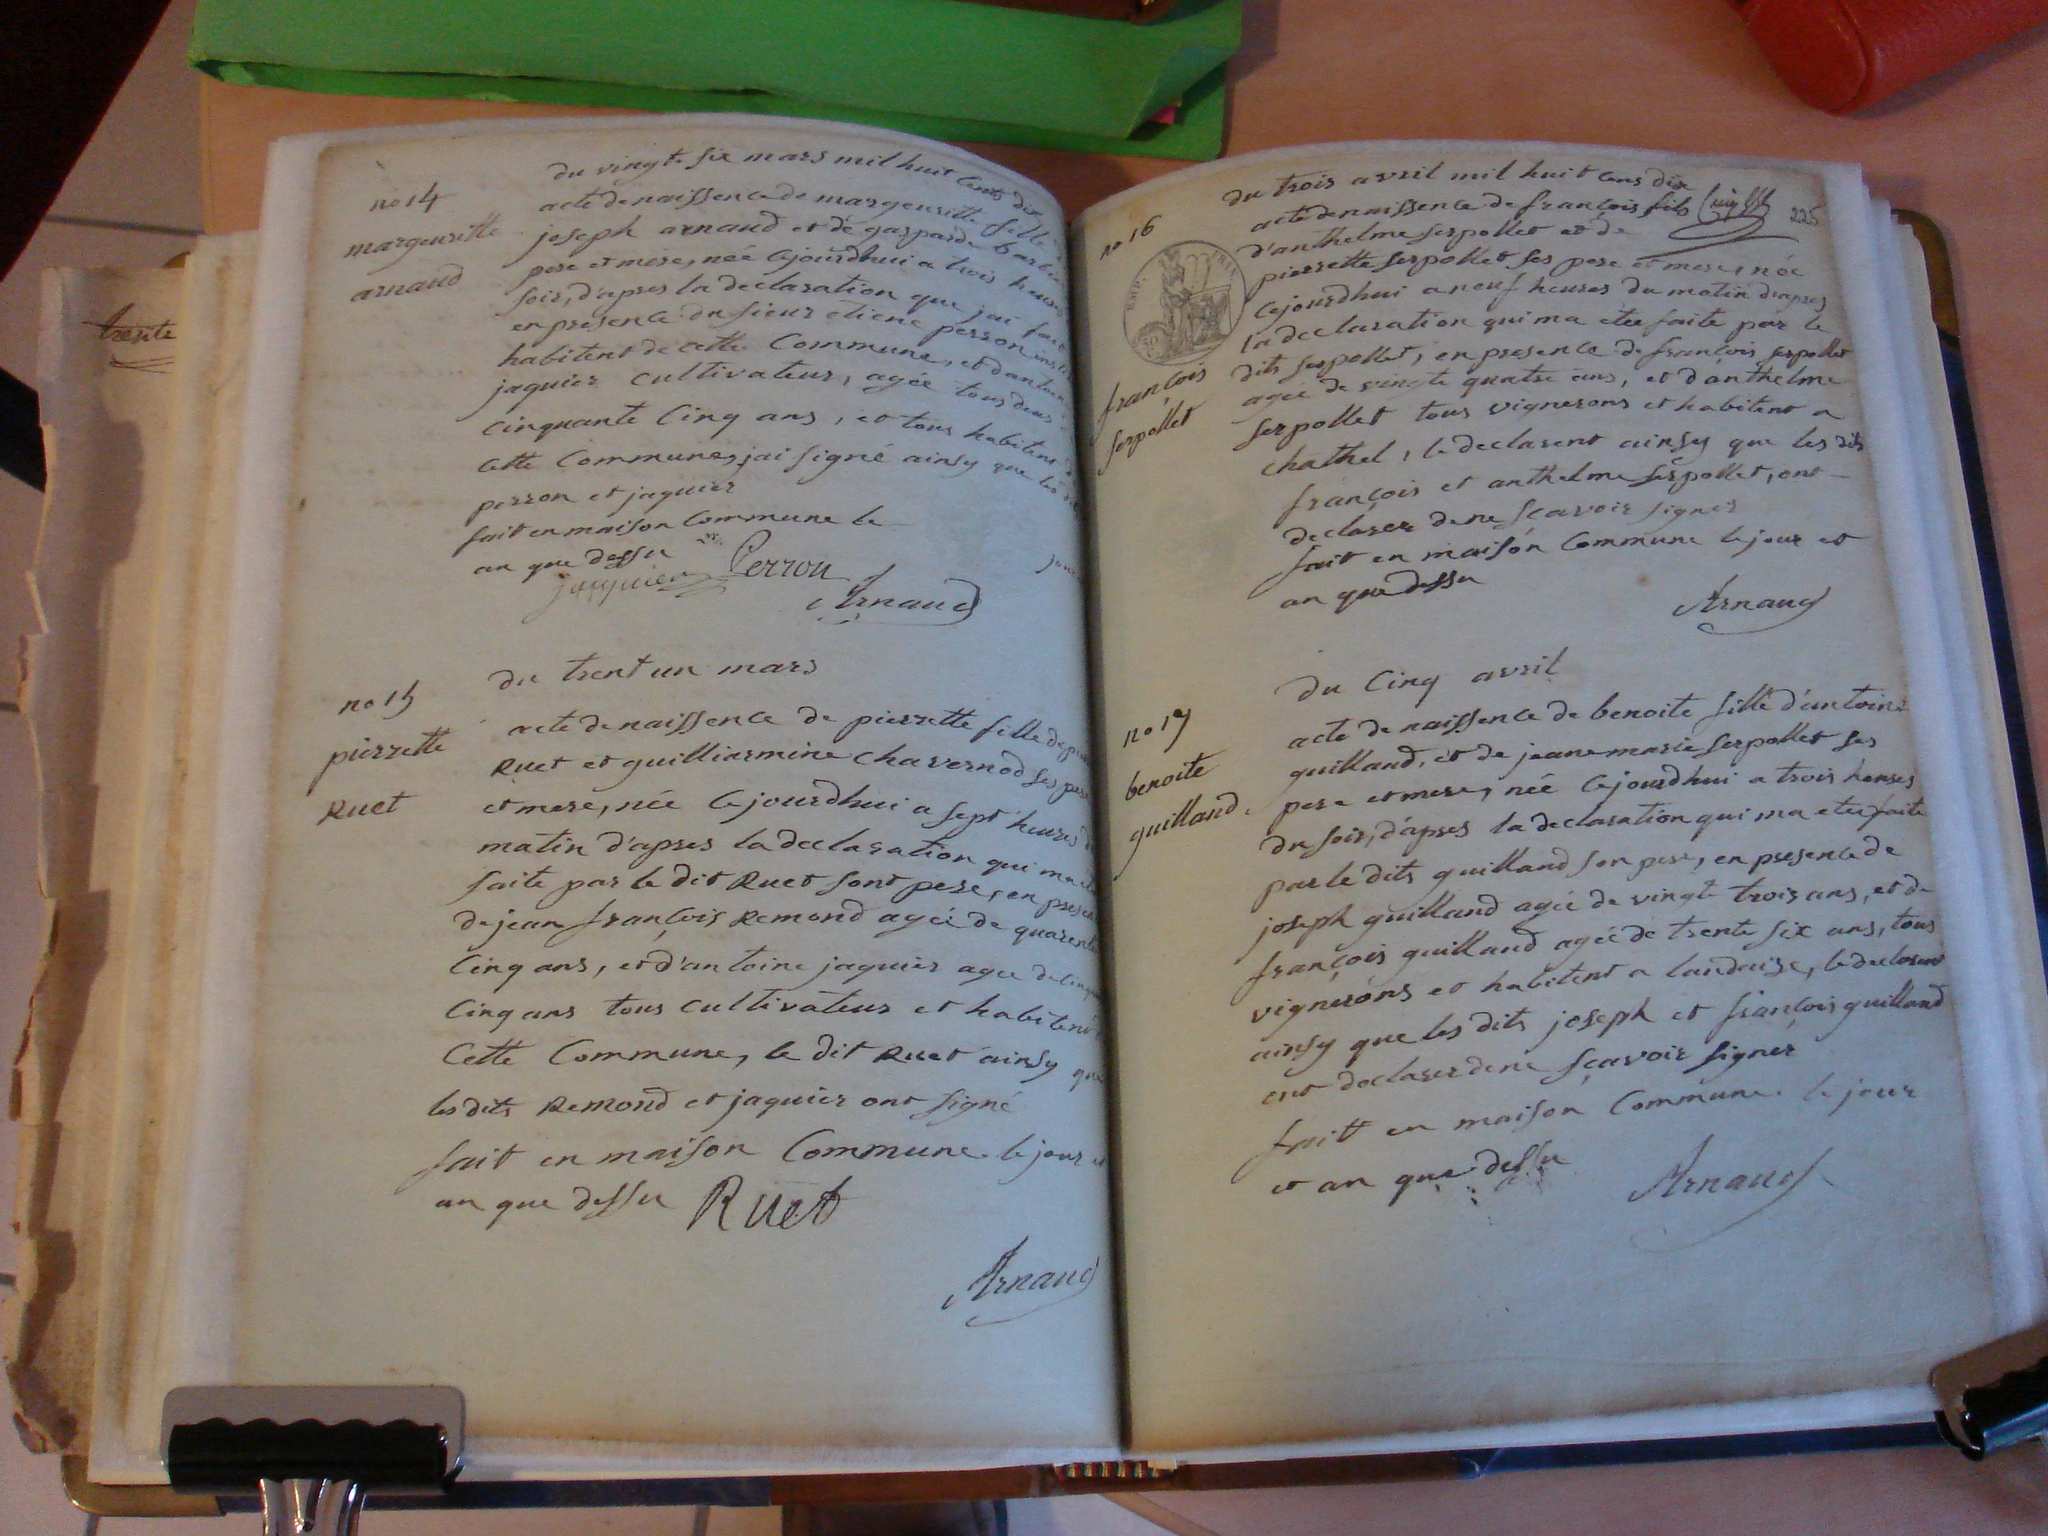 treste
du vingt six mars mil huit cents dix
no 14
margeuritte
arnaud
acte de naissence de margeuritte fille
joseph arnaud et de gasparde
pere et mere, née cejourdhui a trois heures
soir, d'apres la declaration que jai fait
en presence du sieur etiene perron
habitent de cette Commune, et d'antoine
jaquier cultivateur, agée tous deux
cinquante Cinq ans, et tous habitent
cette Commune, jai signé ainsy que les
perron et jaquier
fait en maison Commune le
an que dessu
jaquier Perron
Arnaud
no 15
pierrette
Ruet
du trent un mars
acte de naissence de pierrette fille de
Ruet et guilliarmine chavernod ses pere
et mere, née cejourdhui a sept heures
matin d'apres la declaration qui ma
faite par le dit Ruet sont pere, en
de jean françois Remond agée de quarente
Cinq ans, et d'antoine jaquier agee de
Cinq ans tous cultivateur et habitent
Cette Commune, le dit Ruet ainsy que
les dits Remond et jaquier ont signé
fait en maison Commune le jour et
an que dessu Ruet
Arnaud
225
no 16
françois
serpollet
du trois avril mil huit cens dix
acte de naissence de françois fils
d'anthelme serpollet et de
pierrette serpollet ses pere et mere, née
cejourdhui a neuf heures du matin d'apres
la declaration qui ma etée faite par le
dits serpollet, en presence de françois serpollet
agée de vingte quatre ans, et d'anthelme
serpollet tous vignerons et habitent a
chathel, le declarent ainsy que les dits
françois et anthelme serpollet, ont
declarer de ne sçavoir signer
fait en maison Commune le jour et
an que dessu
Arnaud
no 17
benoite
guilland.
du Cinq avril
acte de naissence de benoite fille d'antoine
guilland, et de jeane marie serpollet ses
pere et mere, née cejourdhui a trois heures
du soir, d'apres la declaration qui ma etée faite
par le dits guilland son pere, en presence de
joseph guilland agée de vingt trois ans, et de
françois guilland agée de trente six ans, tous
vignerons et habitent a landaise, le declarent
ainsy que les dits joseph et françois guilland
ont declarer de ne sçavoir signer
fait en maison Commune le jour
et an que dessu
Arnaud